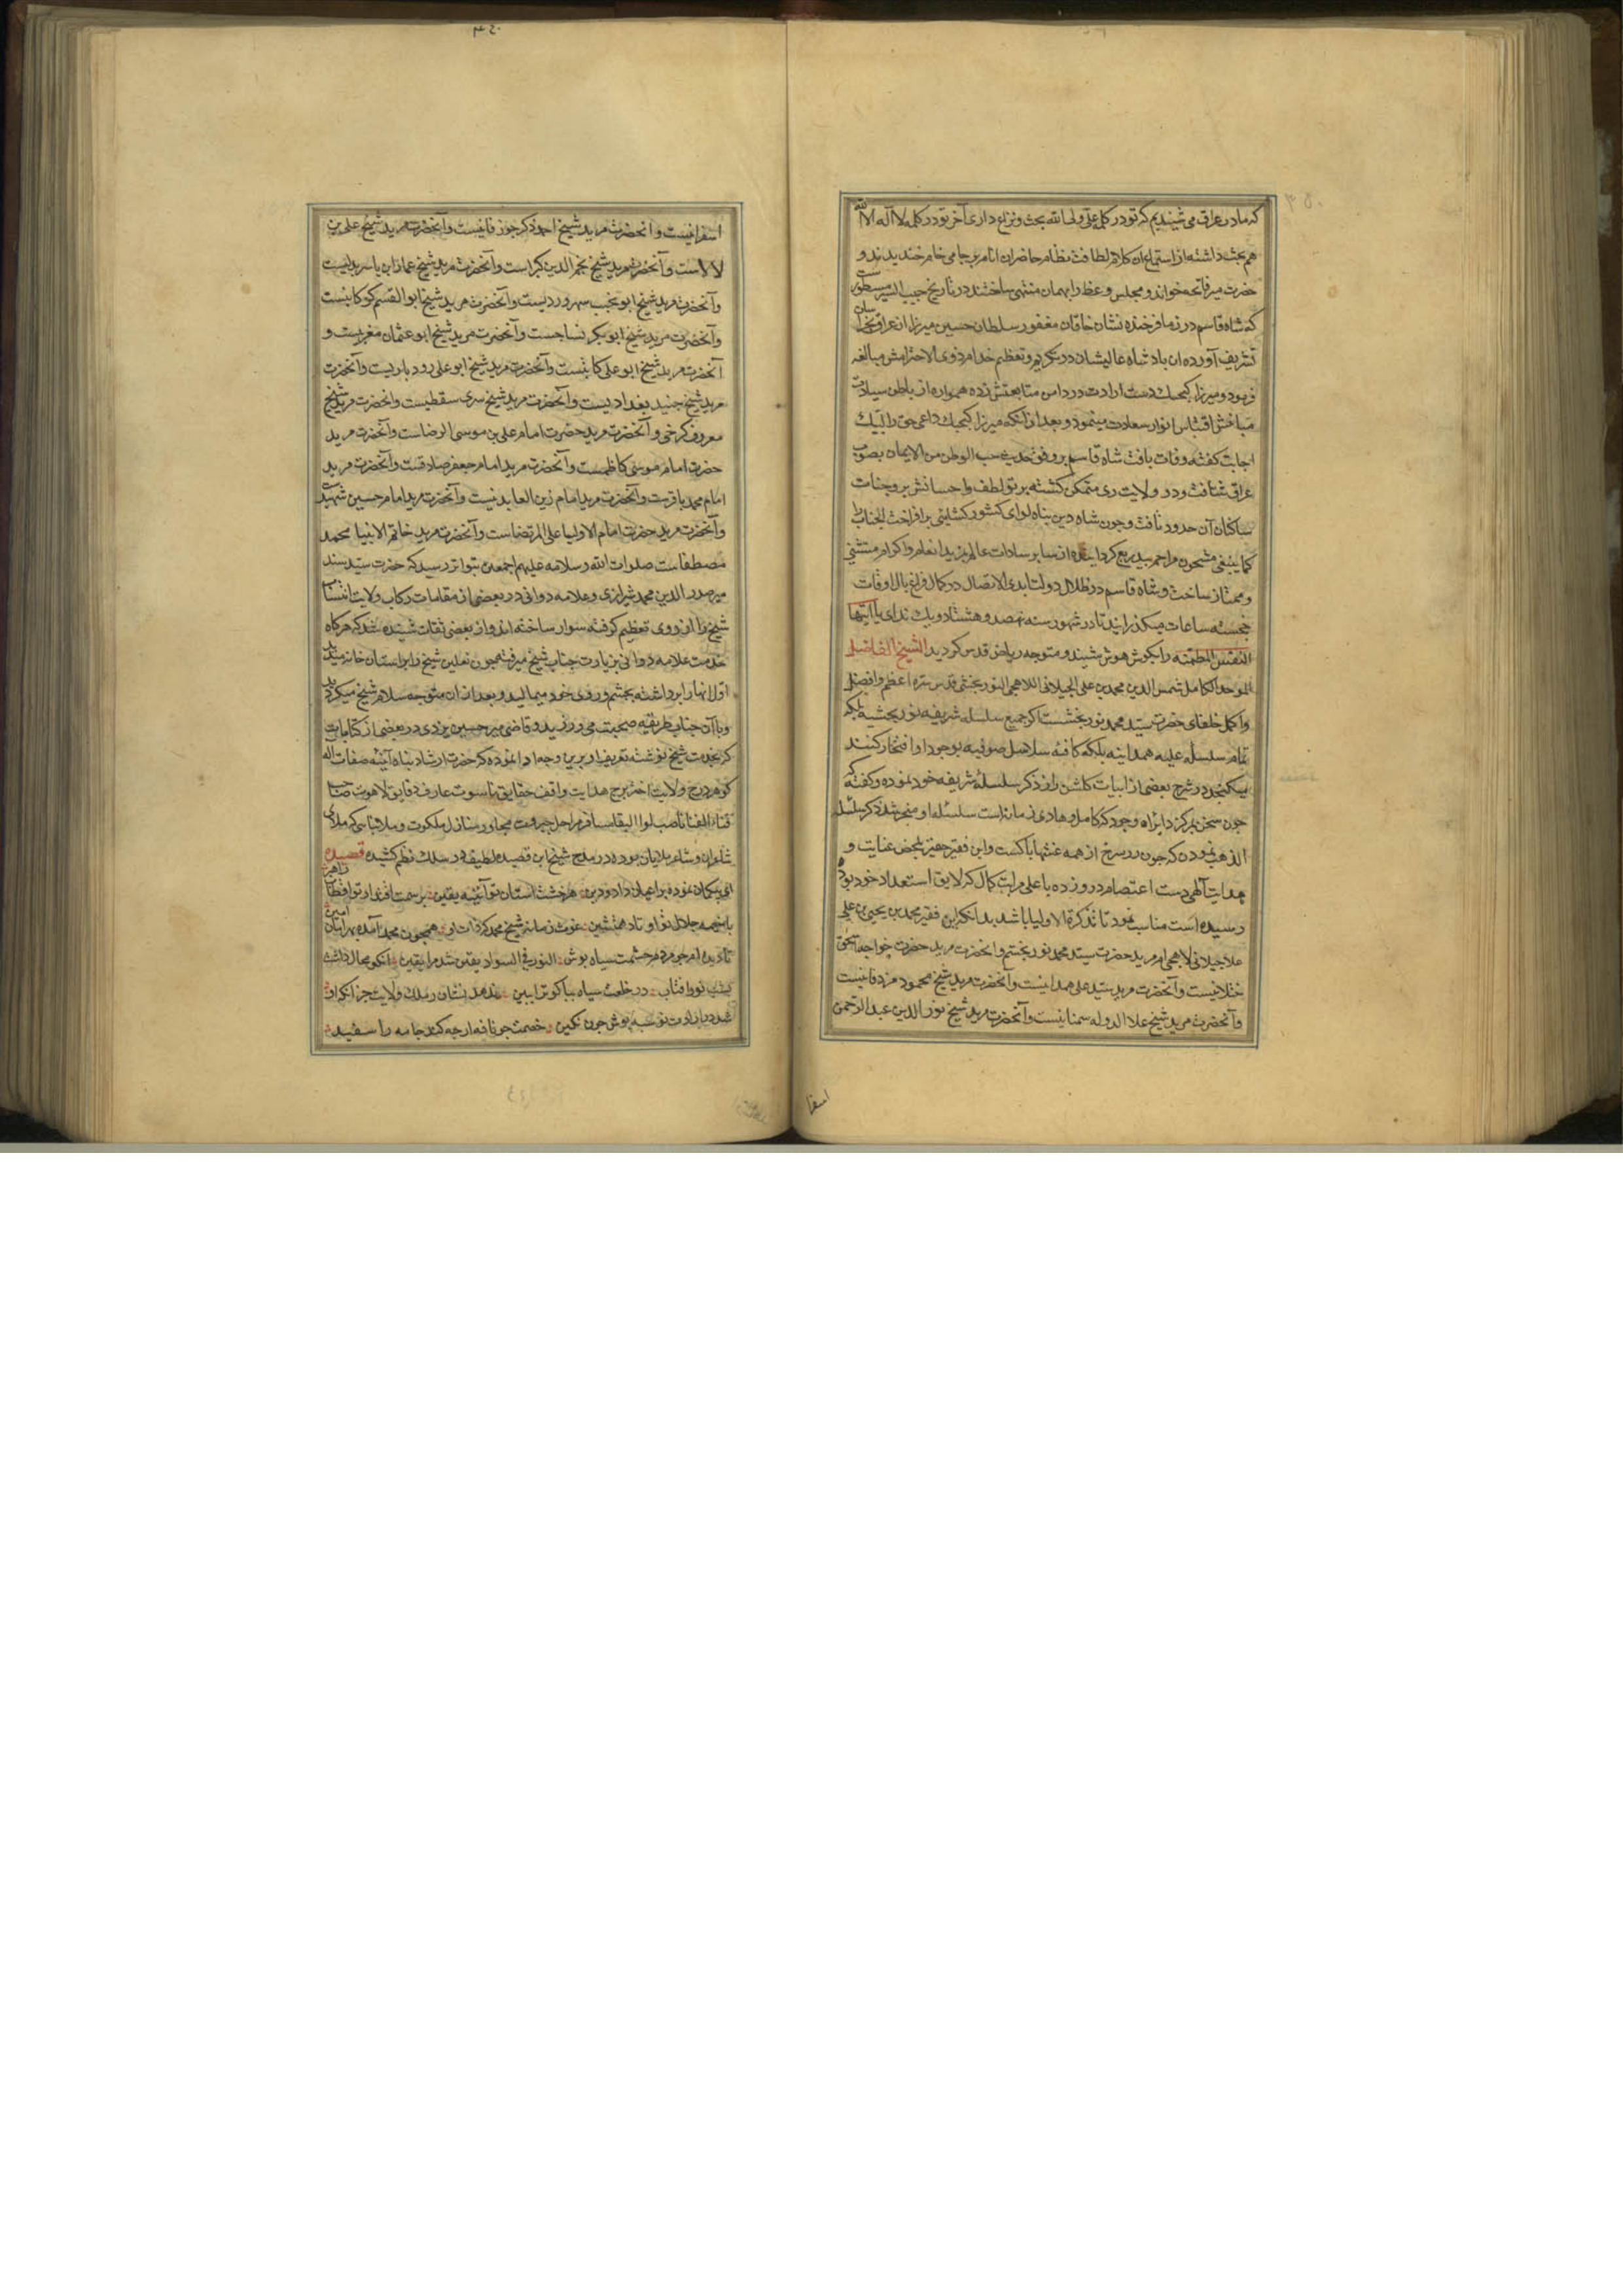 که ما در عراق می شنیدیم که تو در کلمه علی ولی الله بحث و نزاع داری آخر تو در کلمه لا اله الا الله
هم بحث داشته از استماع این کلام لطافت نظام حاضران انام بر جامی خام خندیدند و
حضرت میر فاتحه خواند و مجلس وعظ را بهمان منتهی ساختند در تاریخ حبیب السیر مسطور است
که شاه قاسم در زمان فرخنده نشان خاقان مغفور سلطان حسین میرزا از عراق بخراسان
تشریف آورده ان بادشاه عالیشان در تکریم و تعظیم خدام ذوی الاحترامش مبالغه
فرمود و میرزا کیجیك دست ارادت در دامن متابعتش زده همواره از باطن سیادت
مباخثش اقتباس انوار سعادت مینمود و بعد از آنکه میرزا کیجیك داعی حق را لبیك
اجابت کفته وفات یافت شاه قاسم بر وفق حدیث حب الوطن من الایمان بصوب
عراق شتافت و در ولایت ری متمکن کشته پرتو لطف و احسانش بر وجنات
ساکنان آن حدود تافت و چون شاه دین پناه لوای کشور کشایی برافراخت الجناب را
کما ینبغی مشحون مراحم بیدریغ کردانیده از سایر سادات عالم بمزید انعام و اکرام مستثنی
و ممتاز ساخت و شاه قاسم در ظلال دولت ابدی الاتصال در کمال فراغ بال اوقات
خجسته ساعات میکذرانید تا در شهور سنه نهصد و هشتاد و یك ندای یا ایتها
النفس المطمئنه را بکوش هوش شنید و متوجه ریاض قدس کردید الشیخ الفاضل
الموحد الکامل شمس الدین محمد بن علی الجیلانی اللاهجی النور بخشی قدس سره اعظم و افضل
و اکمل خلفای حضرت سید محمد نور بخشست که جمیع سلسله شریفه نور بخشیه بلکه
تمام سلسله علیه همدانیه بلکه کافه سلاسل صوفیه بوجود او افتخار کنند
میکنجد در شرح بعضی از ابیات کلشن راز ذکر سلسله شریفه خود نموده و کفته که
چون سخن بمرکز دایره وجود که کامل و هادی زمانست سلسله او منجر شد ذکر سلسله
الذهب نمودن که چون زر سرخ از همه غشها پاکست و این فقیر حقیر بمحض عنایت و
هدایت آلهی دست اعتصام درو زده با علی مراتب کمال که لایق استعداد خود بود
رسیده است مناسب نمود تا تذکرة الاولیا باشد بدانکه این فقیر محمد بن یحیی بن علی
علا جیلانی لاهجی ام مرید حضرت سید محمد نور بخشم و انحضرت مرید حضرت خواجه اسحق
ختلانیست و آنحضرت مرید سید علی همدانیست و آنحضرت مرید شیخ محمود مزدقانیست
و آنحضرت مرید شیخ علاء الدوله سمنانیست و آنحضرت مرید شیخ نور الدین عبد الرحمن
اسفا
اسفراینیست و انحضرت مرید شیخ احمد ذکر جوزقانیست و آنحضرت مرید شیخ علی بن
لالاست و آنحضرت مرید شیخ نجم الدین کبراست و آنحضرت مرید شیخ عمار ابن یاسر بدلیست
و آنحضرت مرید شیخ ابو نجیب سهروردیست و آنحضرت مرید شیخ ابو القسم کورکانیست
و آنحضرت مرید شیخ ابو بکر نساجست و آنحضرت مرید شیخ ابو عثمان مغربیست و
آنحضرت مرید شیخ ابو علی کاتبست و آنحضرت مرید شیخ ابو علی رودباریست و آنحضرت
مرید شیخ جنید بغدادیست و آنحضرت مرید شیخ سری سقطیست و انحضرت مرید شیخ
معروف کرخی و آنحضرت مرید حضرت امام علی بن موسی الرضاست و آنحضرت مرید
حضرت امام موسی کاظمست و آنحضرت مرید امام جعفر صادقست و آنحضرت مرید
امام محمد باقرست و آنحضرت مرید امام زین العابدنیست و آنحضرت مرید امام حسین شهید است
و آنحضرت مرید حضرت امام الاولیا علی المرتضاست و آنحضرت مرید خاتم الانبیا محمد
مصطفاست صلوات الله و سلامه علیهم اجمعین بتواتر رسید که حضرت سید سند
میر صدر الدین محمد شیرازی و علامه دوانی در بعضی از مقامات رکاب ولایت انتساب
شیخ را از روی تعظیم کرفته سوار ساخته اند و از بعضی ثقات شنیده شد که هر کاه
خدمت علامه دوانی بزیارت جناب شیخ میرفت چون نعلین شیخ را بر استان خانه میدید
اول انها را برداشته بچشم و روی خود میمالید و بعد از ان متوجه سلام شیخ میکردید
و با آن جناب طریقه صحبت می ورزید و قاضی میر حسین یزدی در بعضی از کتابات
که بخدمت شیخ نوشته تعریف او برین وجه ادا نموده که حضرت ارشاد پناه آئینه صفات اله
کوهر درج ولایت اختر برج هدایت واقف حقایق ناسوت عارف دقایق لاهوت صاحب
فناء الفنا ناصب لواء البقا مسافر مراحل جبروت مجاور منازل ملکوت و ملا بنایی که ملای
شاعران و شاعر ملایان بوده در مدح شیخ این قصیده لطیف در سلك نظم کشیده قصیده
ای بیکمان نموده براعیان داد و دین هر خشت استان تو آئینه یقین
با خیمه جلال تو اوتاد همنشین غوث زمانه شیخ محمد که ذات او همچون محمد آمده
تا دیده ام چو مردم چشمت سیاه پوش النور فی السواد یقین شد مرا یقین
بشب نور افتاب در خلعت سیاه بیا کو ترا ببین ندهد نشان ز ملك ولایت جز آنکه او
شد در ارادت تو سیه پوش چون نکین خصمت چو نافه ارچه کند جامه را سفید